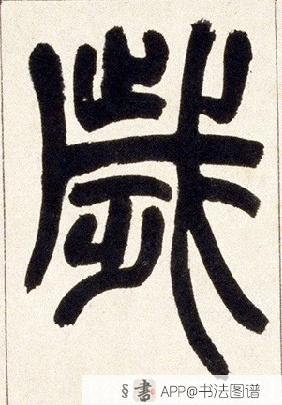 歲
§ 書 APP@书法图谱